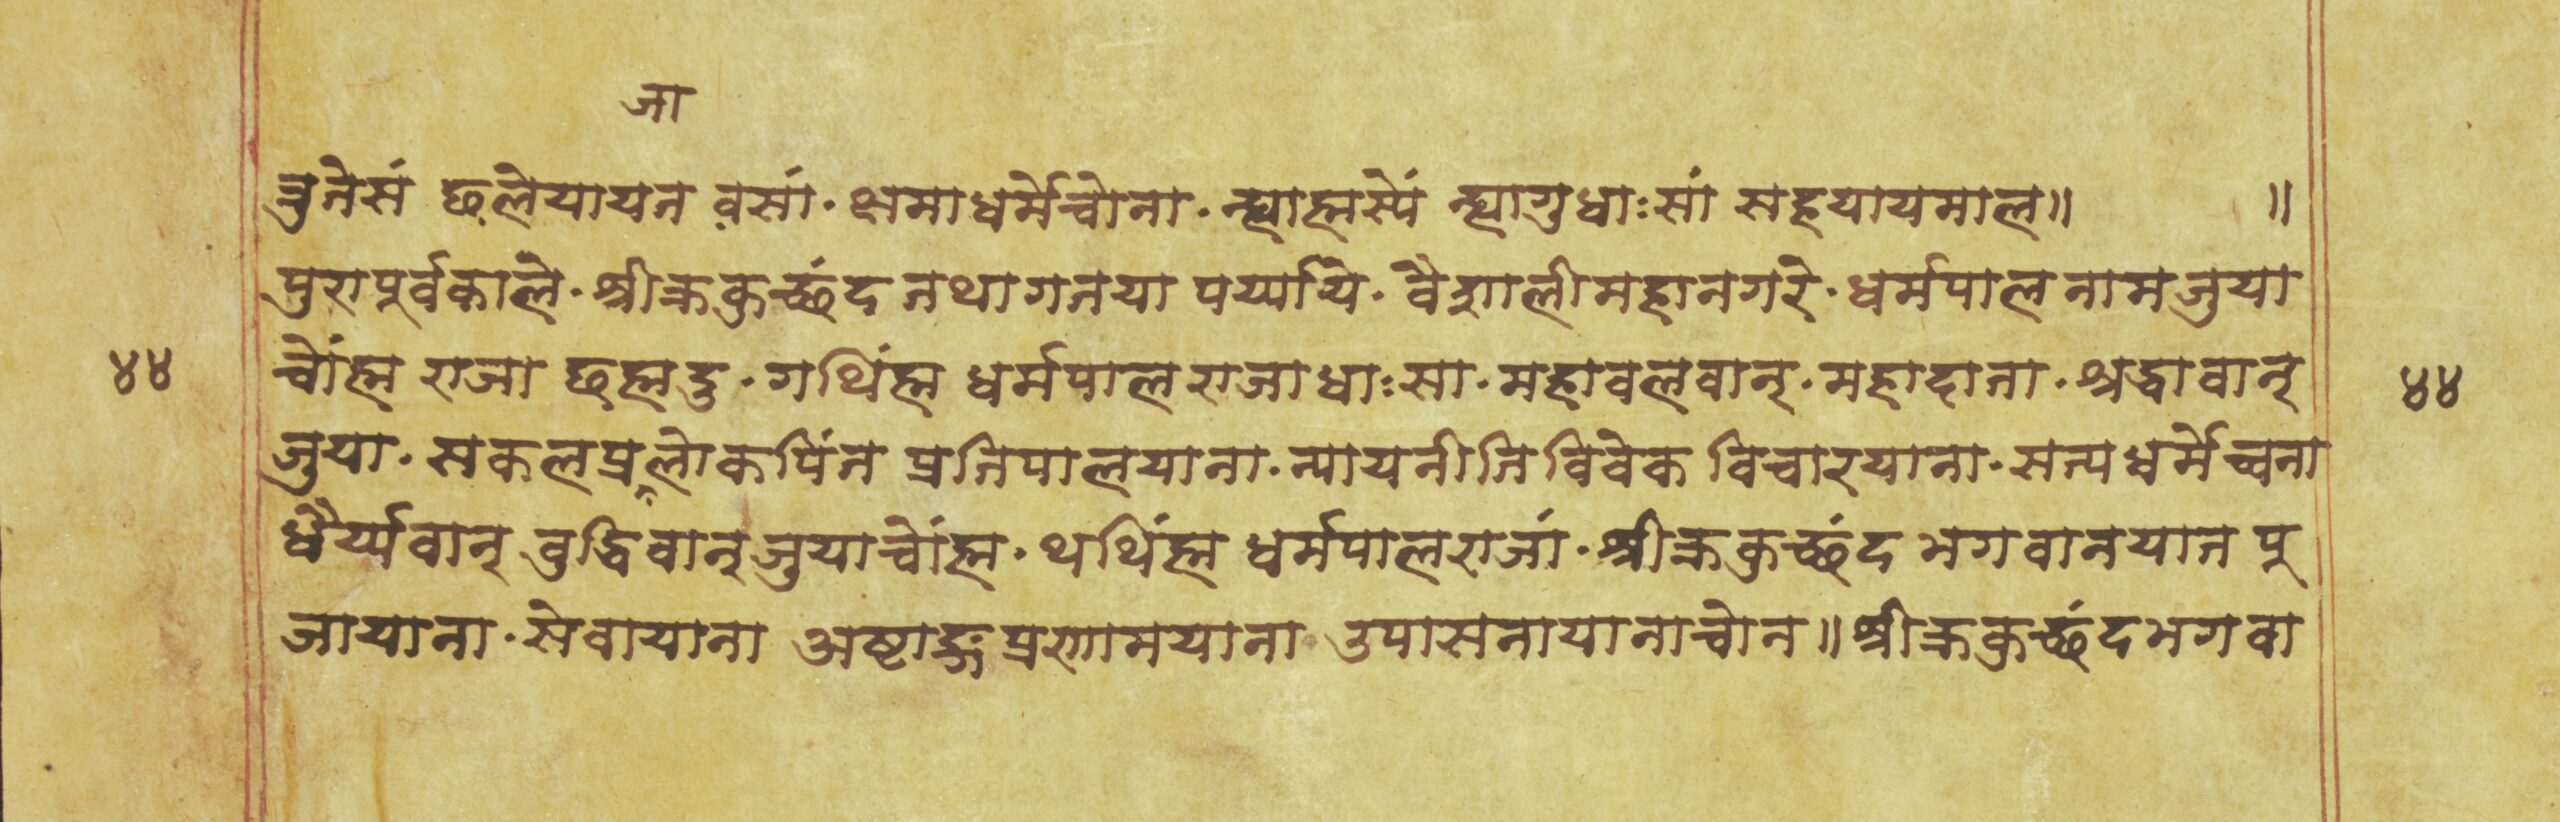 जा
ञुतेसं छ़लेयायत व़सां· क्षमाधर्मेचोना· न्ह्याह्मस्पें न्ह्यागुधाःसां सह्रयायमाल॥ ॥
पुरापूर्वकाले· श्रीक्रकुच्छंद तथागतया पर्य्याये· वैशालीमहानगरे· धर्मपाल नामजुया
चोंह्म राजा छह्मदु· गथिंह्म धर्मपालराजाधाःसा· महावलवान्· महादाता· श्रद्धावान्
जुया· सकलप्रलोकपिंत प्रतिपालयाना· न्यायनीतिविवेक विचारयाना· सत्यधर्मेच्वना
धैर्य्यवान् वुद्धिवान्जुयाचोंह्म· थथिंह्म धर्मपालराजां· श्रीक्रकुच्छंद भगवानयात पू
जायाना· सेवायाना अष्टाङ्गप्रणामयाना उपासनायानाचोन॥ श्रीक्रकुच्छंदभगवा
४४
४४